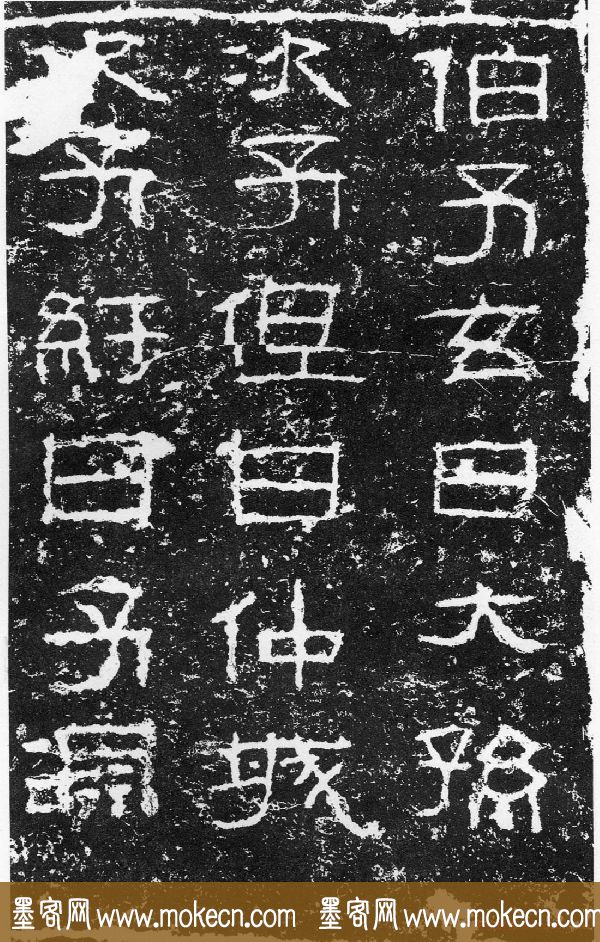 伯子玄曰大孫
次子但曰仲城
次子紆曰子淵
墨客网 www.mokecn.com 墨客网 www.mokecn.com